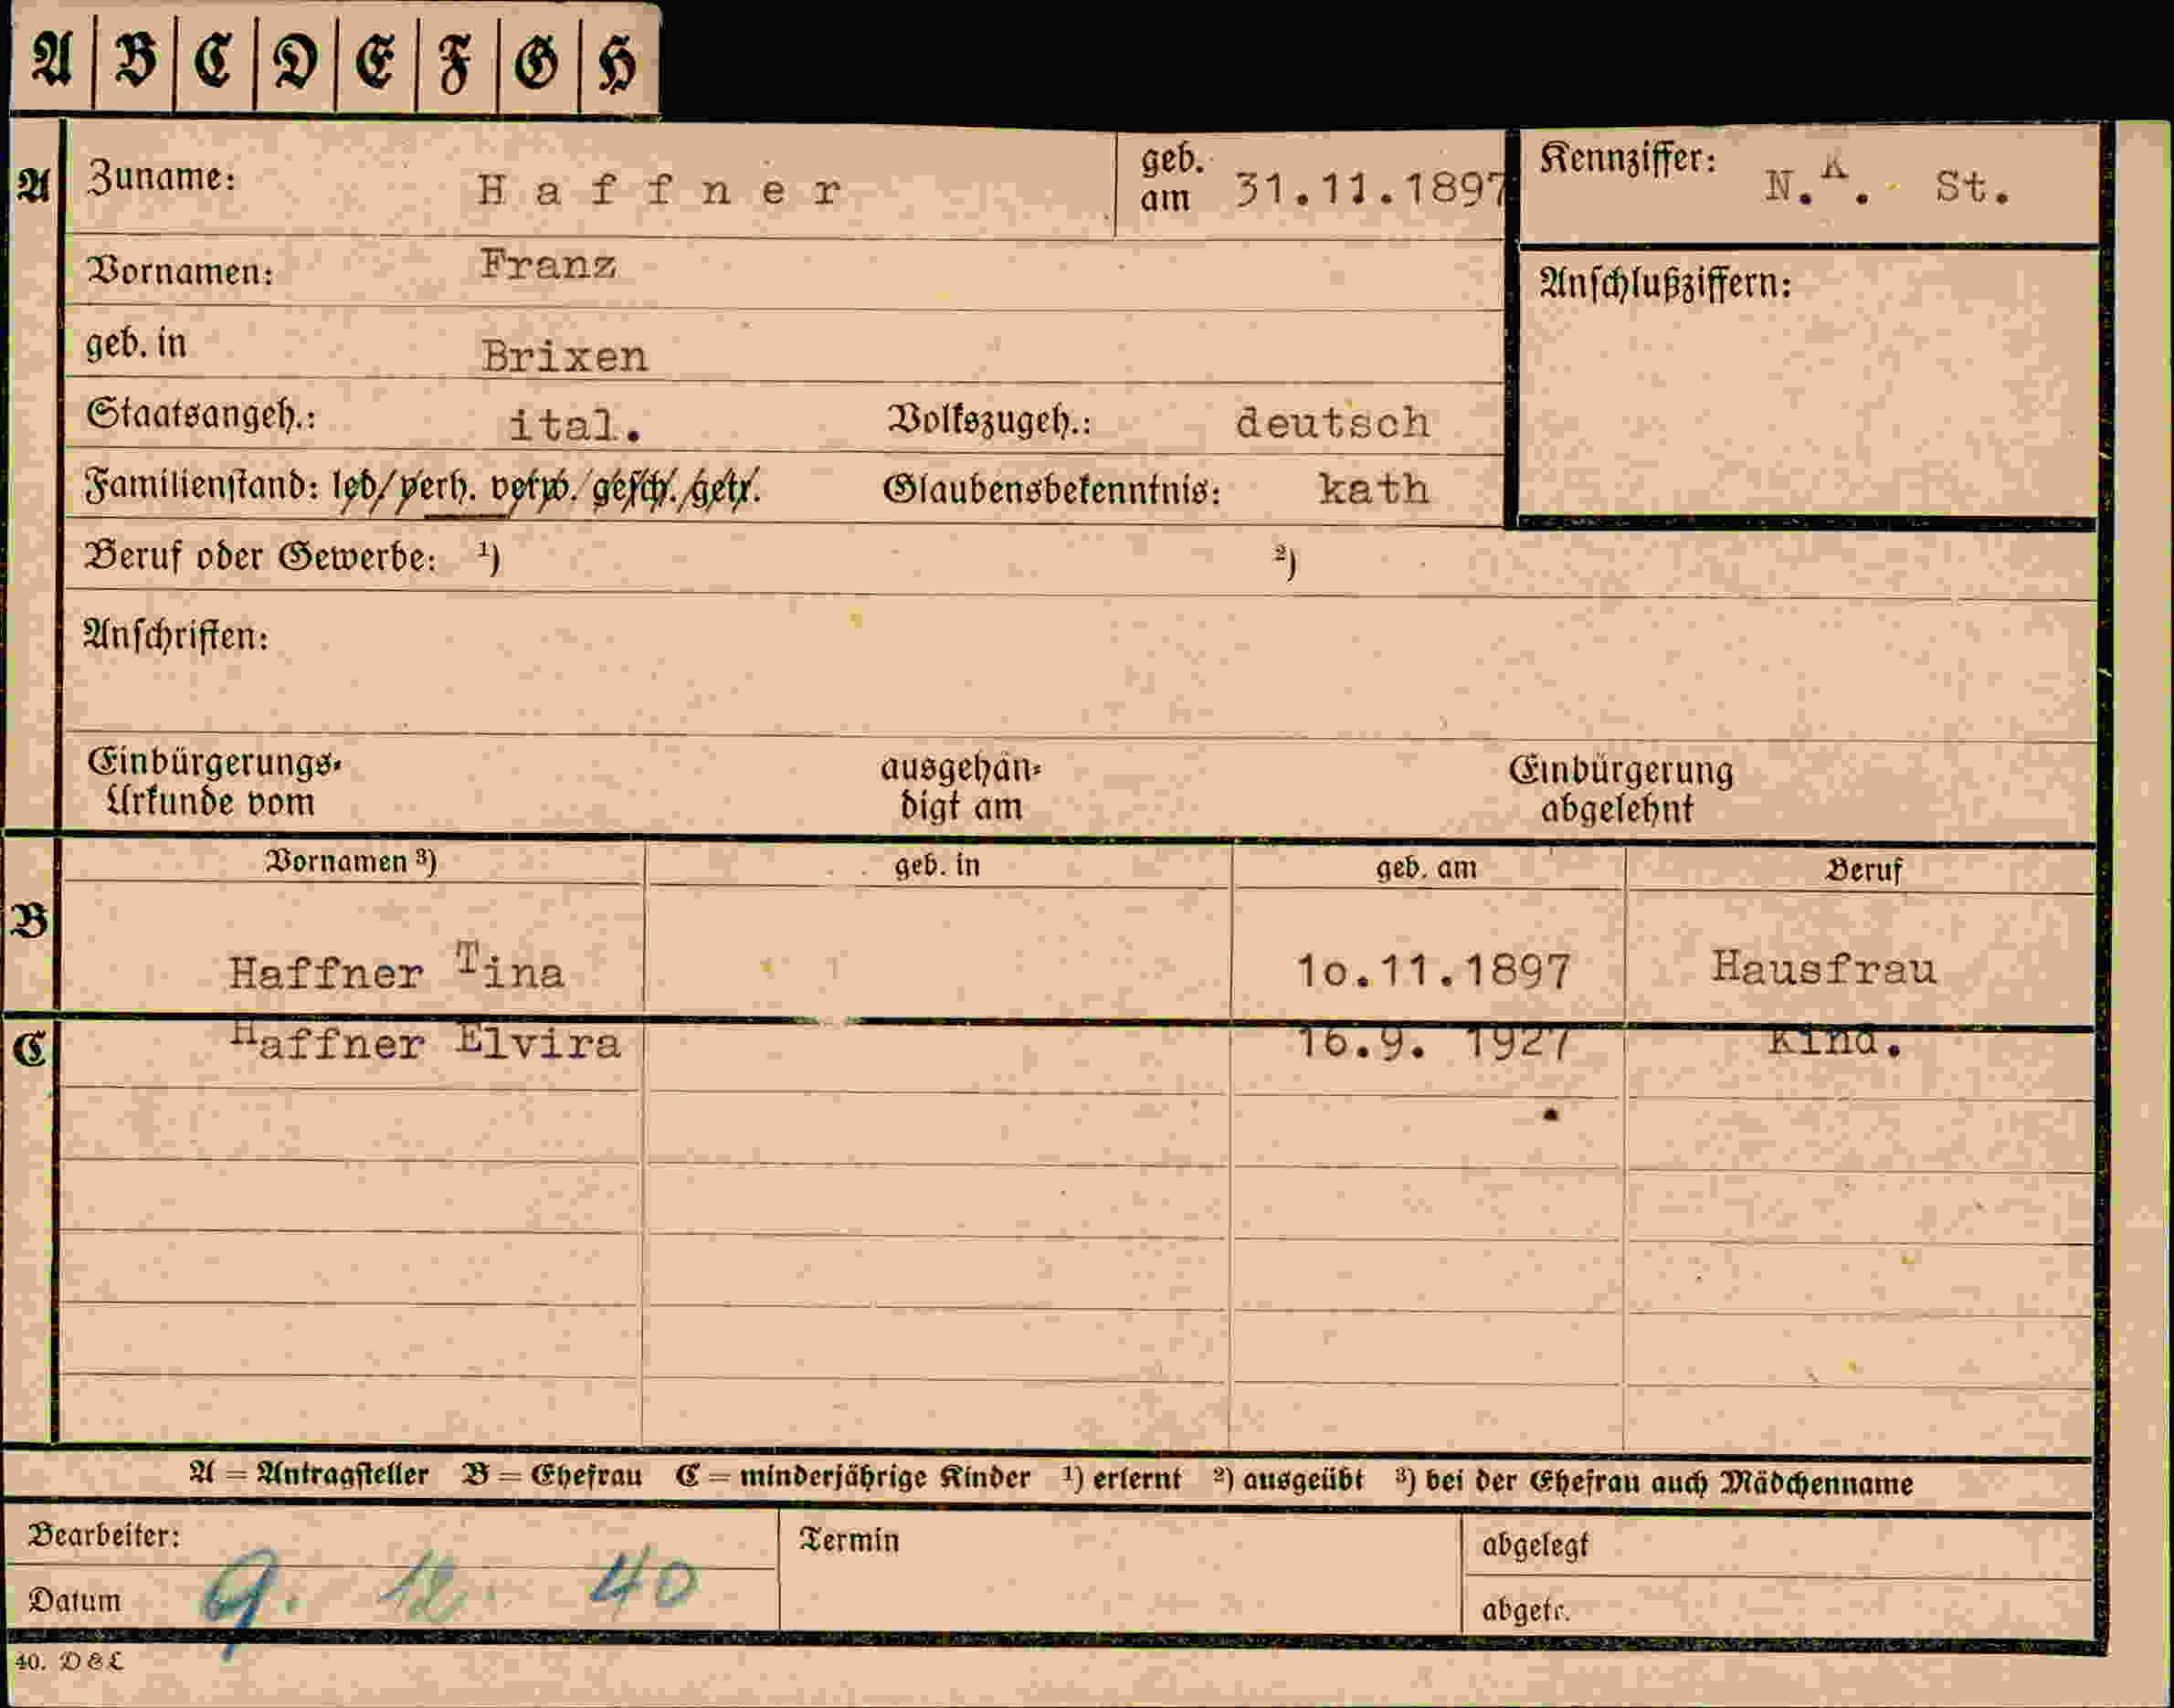 A B C D E F G H
A Zuname: Haffner geb. am 31.11.1897 Kennziffer: N.A. St.
Vornamen: Franz Anschlußziffern:
geb. in Brixen
Staatsangeh.: ital. Volkszugeh.: deutsch
Familienstand: led/verh. verw./gesch./getr. Glaubensbekenntnis: kath
Beruf oder Gewerbe: ¹) ²)
Anschriften:
Einbürgerungs- ausgehän- Einbürgerung
Urkunde vom digt am abgelehnt
Vornamen ³) geb. in geb. am Beruf
B Haffner Tina 10.11.1897 Hausfrau
C Haffner Elvira 16.9. 1927 Kind.
A = Antragsteller B = Ehefrau C = minderjährige Kinder ¹) erlernt ²) ausgeübt ³) bei der Ehefrau auch Mädchenname
Bearbeiter: Termin abgelegt
Datum 9. 12. 40 abgetr.
40. D & L